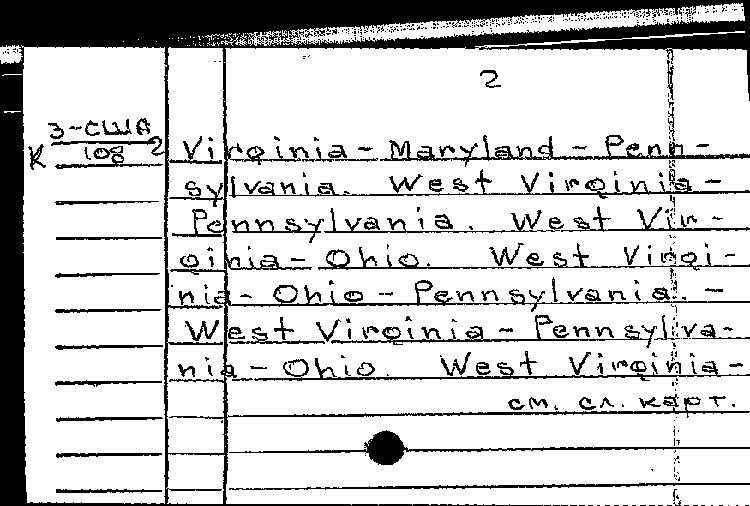 2
3-США
К 108 2
Virginia - Maryland - Penn-
sylvania. West Virginia -
Pennsylvania. West Vir-
ginia - Ohio. West Virgi-
nia - Ohio - Pennsylvania. -
West Virginia - Pennsylva-
nia - Ohio. West Virginia -
см. сл. карт.